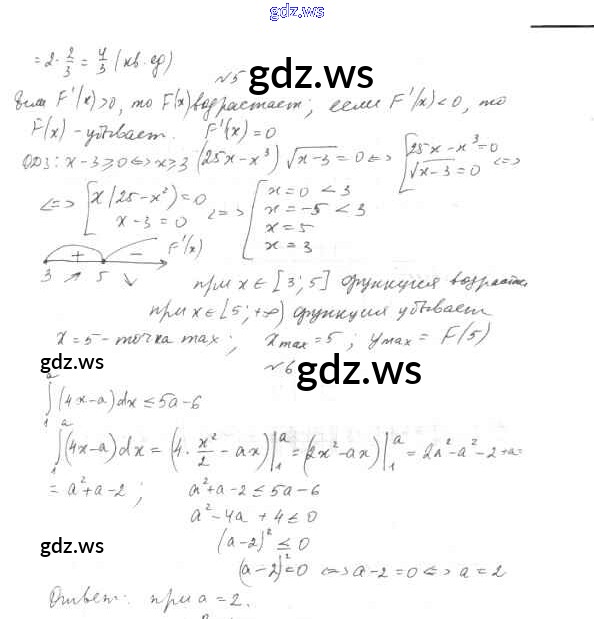 gdz.ws
= 2 · 2/3 = 4/3 (кв. ед)
№5
gdz.ws
Если F'(x)>0, то F(x) возрастает; если F'(x)<0, то
F(x) - убывает. F'(x) = 0
ОДЗ: x-3≥0 <=> x≥3 (25x - x³) √(x-3) = 0 <=> [25x - x³ = 0 √(x-3) = 0 <=>
<=> [x(25-x²) = 0 x-3 = 0 <=> [x=0 < 3 x=-5 < 3 x=5 x=3
+ - F'(x)
3 ↗ 5 ↘
при x ∈ [3; 5] функция возрастает
при x ∈ [5; +∞) функция убывает
x = 5 - точка max; x max = 5; y max = F(5)
№6
gdz.ws
gdz.ws
∫₁ᵃ (4x-a)dx ≤ 5a-6
∫₁ᵃ (4x-a)dx = (4 · x²/2 - ax)|₁ᵃ = (2x² - ax)|₁ᵃ = 2a² - a² - 2 + a =
= a² + a - 2; a² + a - 2 ≤ 5a - 6
a² - 4a + 4 ≤ 0
gdz.ws
(a-2)² ≤ 0
gdz.ws
(a-2)² = 0 <=> a-2 = 0 <=> a = 2
Ответ: при a = 2.